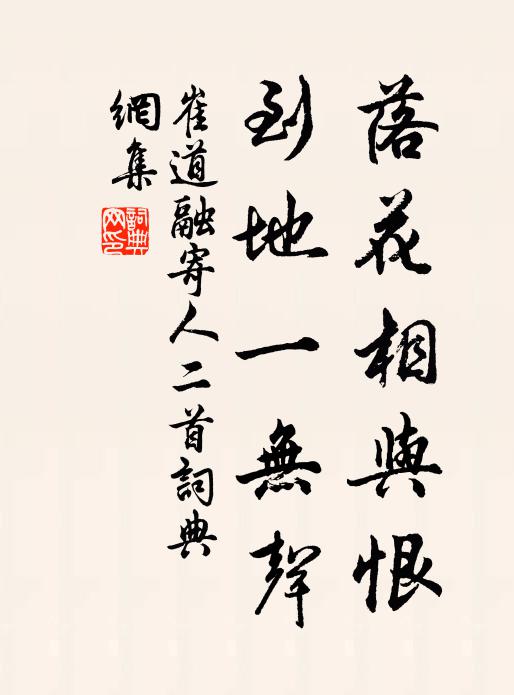 落花相與恨
到地一無聲
崔道融寄人二首詞典
網集
詞典
网印